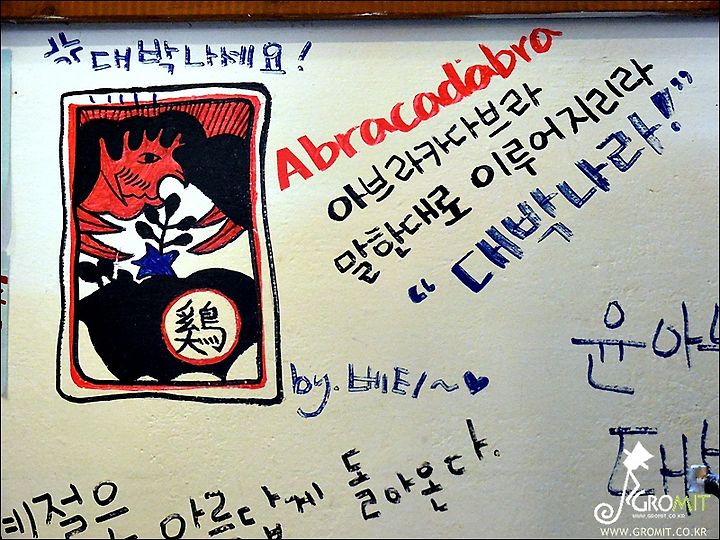 대박나세요!
Abracadabra
아브라카다브라
말한대로 이루어지리라
"대박나라!"
鷄
by. 베티~♥
윤아
대박
계절은 아름답게 돌아온다.
GROMIT
WWW.GROMIT.CO.KR
WWW.GROMIT.CO.KR